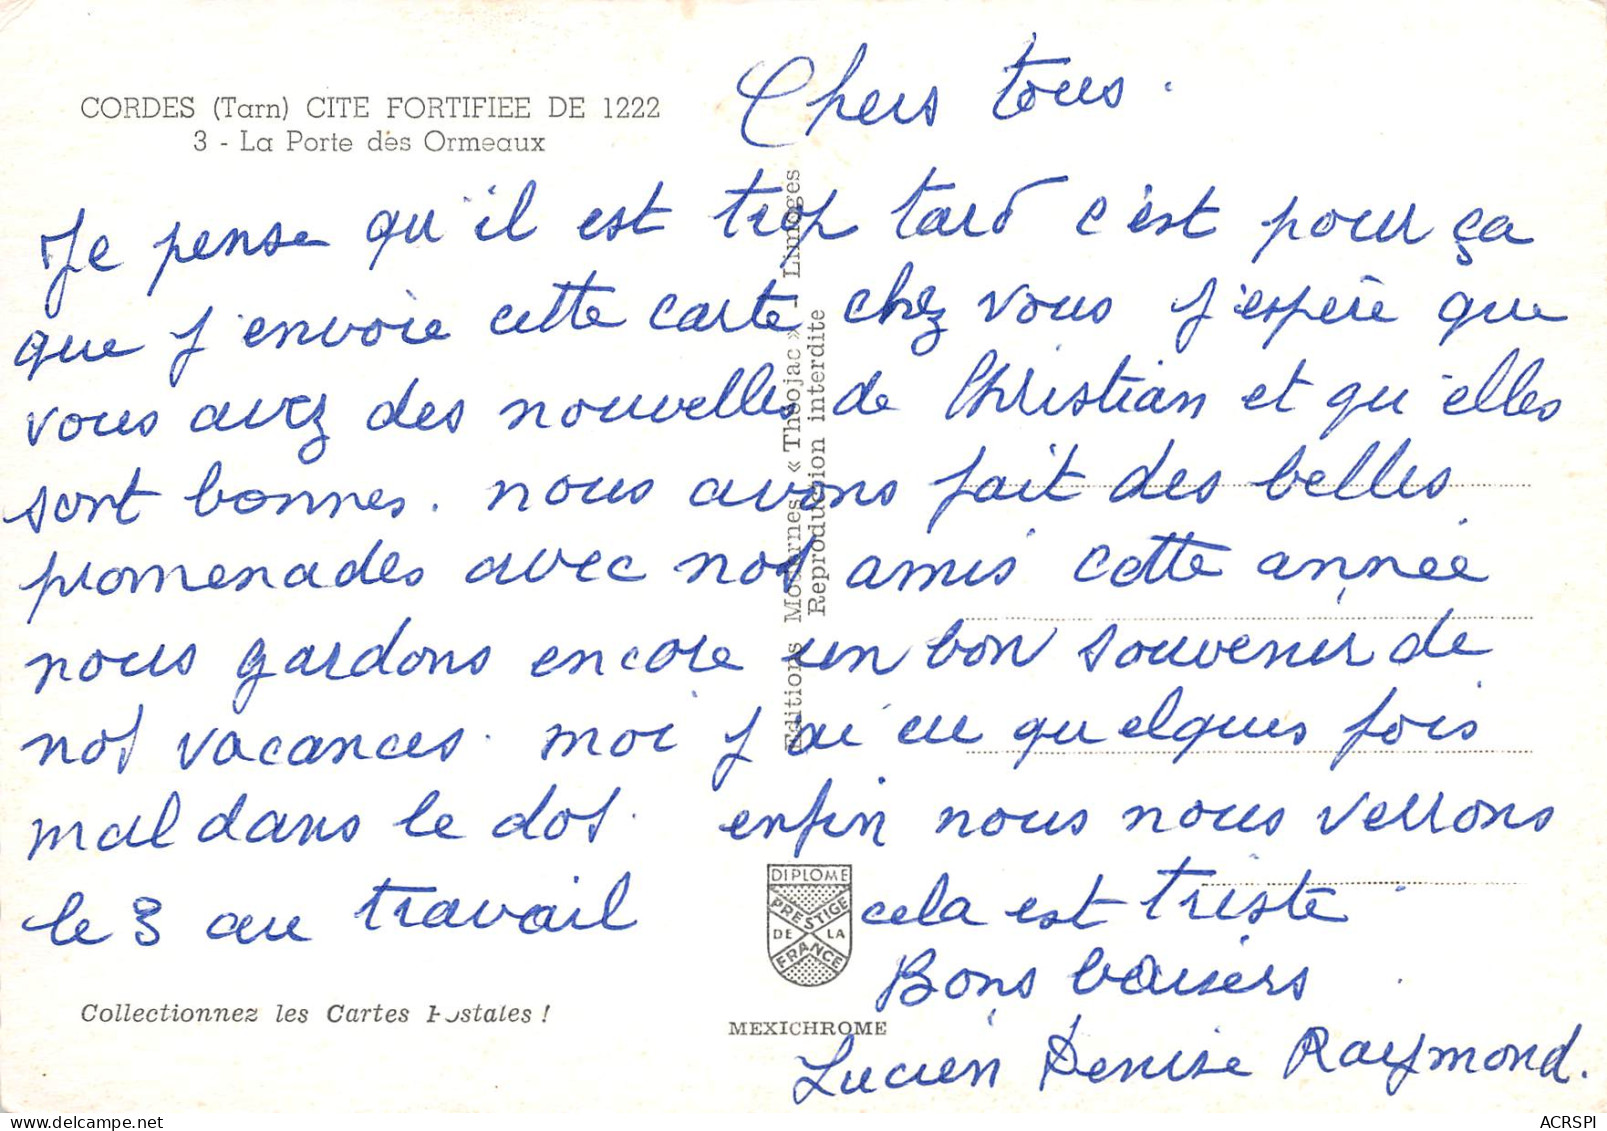 CORDES (Tarn) CITE FORTIFIEE DE 1222
3 - La Porte des Ormeaux
Chers tous.
Je pense qu'il est trop tard c'est pour ça
que j'envoie cette carte chez vous j'espère que
vous avez des nouvelles de Christian et qu'elles
sont bonnes. nous avons fait des belles
promenades avec nos amis cette année
nous gardons encore un bon souvenir de
nos vacances. moi j'ai eu quelques fois
mal dans le dos. enfin nous nous verrons
le 3 au travail cela est triste
Bons baisers
Lucien Denise Raymond.
Editions Modernes « Théojac » - Limoges
Reproduction interdite
DIPLOME
PRESTIGE
DE LA
FRANCE
Collectionnez les Cartes Postales !
MEXICHROME
ACRSPI